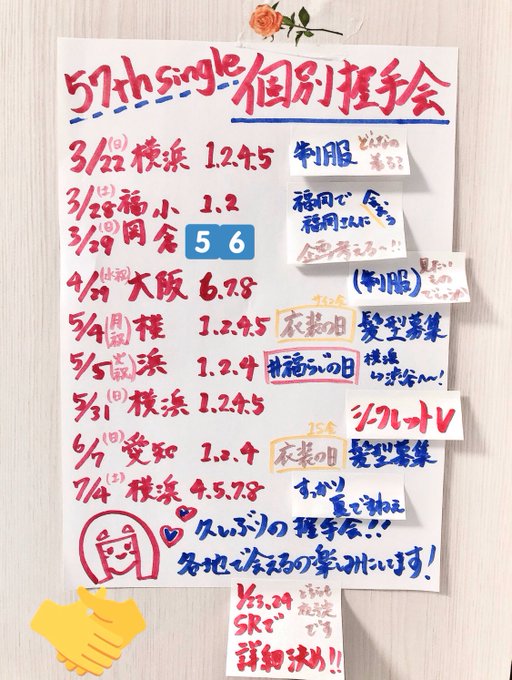 57th single 個別握手会
3/22(日) 横浜 1.2.4.5 制服 どんなの着る?
3/28(土) 福岡 1.2
3/29(日) 小倉 5 6
福岡で
福岡さんに
会おう
企画考える〜!!
4/29(水祝) 大阪 6.7.8 (制服) 見たい
もの
5/4(月祝) 横浜 1.2.4.5 衣装の日 髪型募集
5/5(火祝) 1.2.4 #福らじの日 横浜
渋谷へ〜!
5/31(日) 横浜 1.2.4.5 シークレットV
6/7(日) 愛知 1.2.4 衣装の日 髪型募集
7/4(土) 横浜 4.5.7.8 すっかり
夏ですねぇ
久しぶりの握手会!!
各地で会えるの楽しみにしてます!
1/23.24
SRで
詳細決め!!
どちらも
夜予定
です